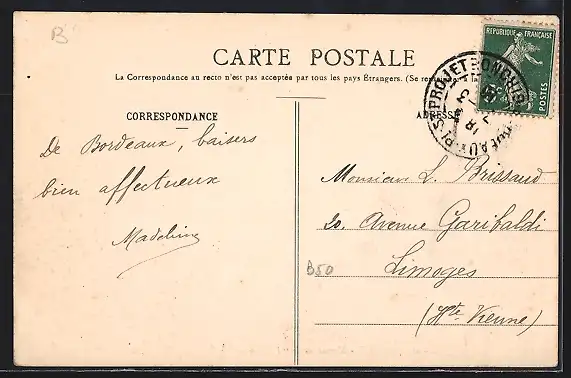 B
CARTE POSTALE
La Correspondance au recto n'est pas acceptée par tous les pays Étrangers. (Se
CORRESPONDANCE
De Bordeaux, baisers
bien affectueux
Madeleine
REPUBLIQUE FRANÇAISE
POSTES
Monsieur L. Brissaud
20. Avenue Garibaldi
B50
Limoges
(Hte Vienne)